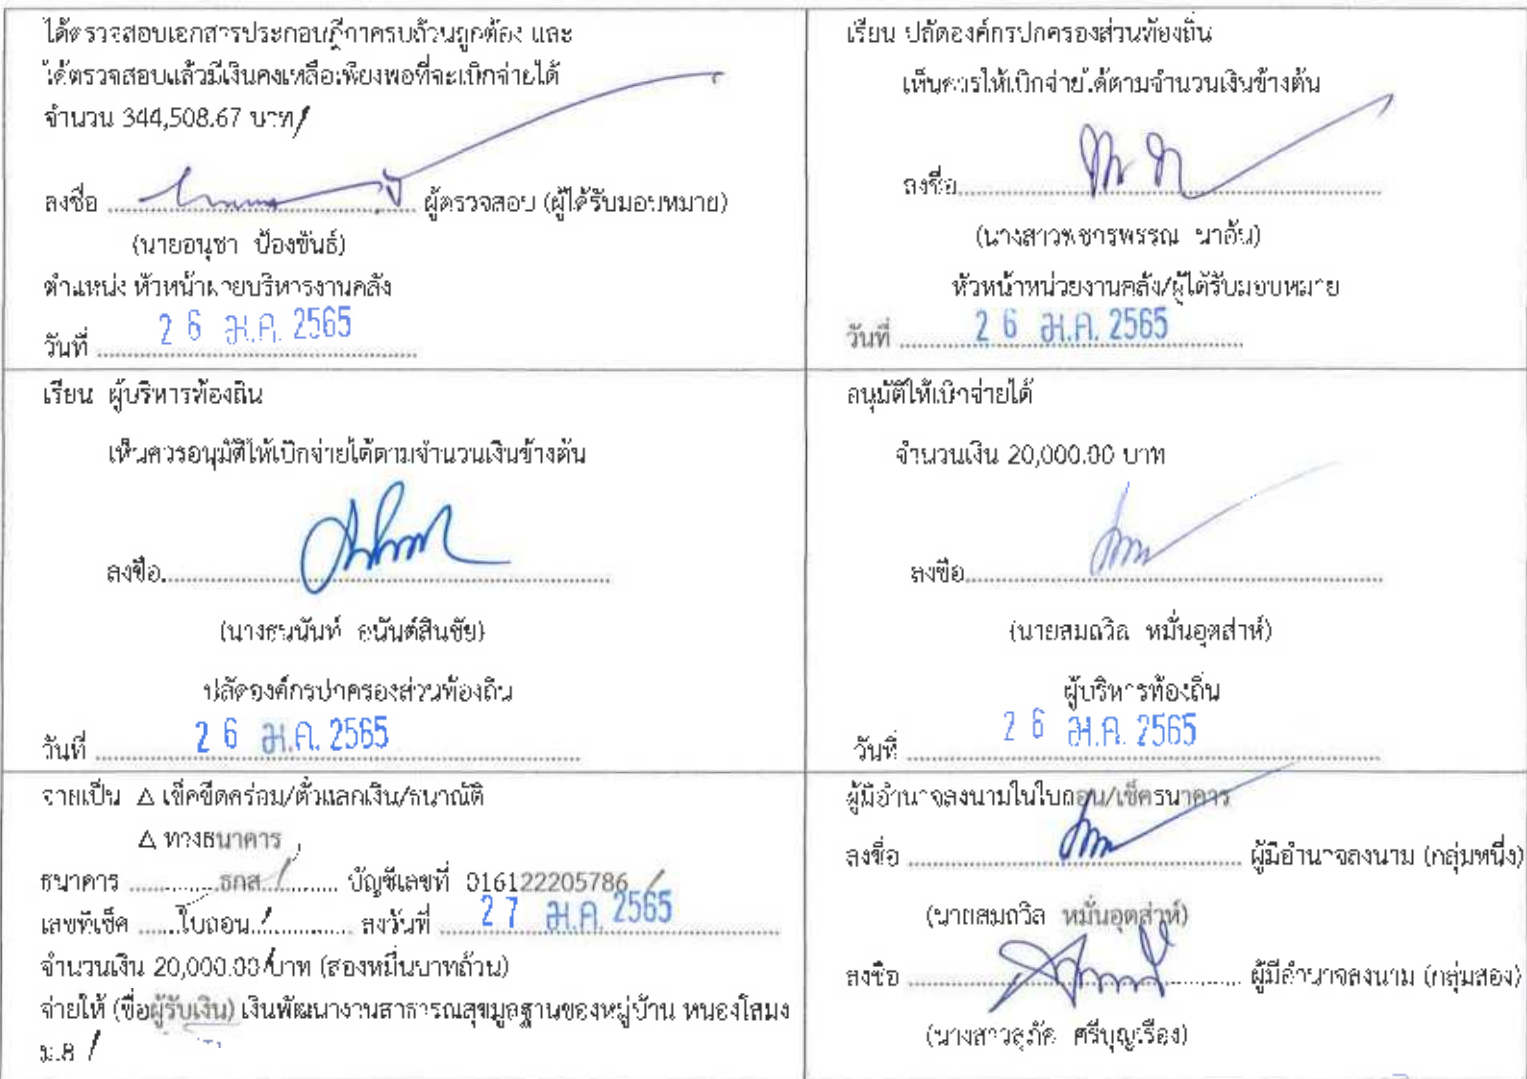 ได้ตรวจสอบเอกสารประกอบฎีกาครบถ้วนถูกต้อง และ
ได้ตรวจสอบแล้วมีเงินคงเหลือเพียงพอที่จะเบิกจ่ายได้
จำนวน 344,508.67 บาท/
ลงชื่อ ........ ผู้ตรวจสอบ (ผู้ได้รับมอบหมาย)
(นายอนุชา ป้องขันธ์)
ตำแหน่ง หัวหน้าฝ่ายบริหารงานคลัง
วันที่ 26 ม.ค. 2565
เรียน ปลัดองค์กรปกครองส่วนท้องถิ่น
เห็นควรให้เบิกจ่ายได้ตามจำนวนเงินข้างต้น
ลงชื่อ........
(นางสาวพชรพรรณ นาอ้น)
หัวหน้าหน่วยงานคลัง/ผู้ได้รับมอบหมาย
วันที่ 26 ม.ค. 2565
เรียน ผู้บริหารท้องถิ่น
เห็นควรอนุมัติให้เบิกจ่ายได้ตามจำนวนเงินข้างต้น
ลงชื่อ........
(นางธนนันท์ อนันต์สินชัย)
ปลัดองค์กรปกครองส่วนท้องถิ่น
วันที่ 26 ม.ค. 2565
อนุมัติให้เบิกจ่ายได้
จำนวนเงิน 20,000.00 บาท
ลงชื่อ........
(นายสมถวิล หมั่นอุตส่าห์)
ผู้บริหารท้องถิ่น
วันที่ 26 ม.ค. 2565
จ่ายเป็น Δ เช็คขีดคร่อม/ตั๋วแลกเงิน/ธนาณัติ
Δ ทางธนาคาร
ธนาคาร ........ธกส/........ บัญชีเลขที่ 016122205786 /
เลขที่เช็ค ......ใบถอน./........ ลงวันที่ 27 ม.ค. 2565
จำนวนเงิน 20,000.00/บาท (สองหมื่นบาทถ้วน)
จ่ายให้ (ชื่อผู้รับเงิน) เงินพัฒนางานสาธารณสุขมูลฐานของหมู่บ้าน หนองโสมง
ม.8 /
ผู้มีอำนาจลงนามในใบถอน/เช็คธนาคาร
ลงชื่อ ........ ผู้มีอำนาจลงนาม (กลุ่มหนึ่ง)
(นายสมถวิล หมั่นอุตส่าห์)
ลงชื่อ ........ ผู้มีอำนาจลงนาม (กลุ่มสอง)
(นางสาวสุภัค ศรีบุญเรือง)